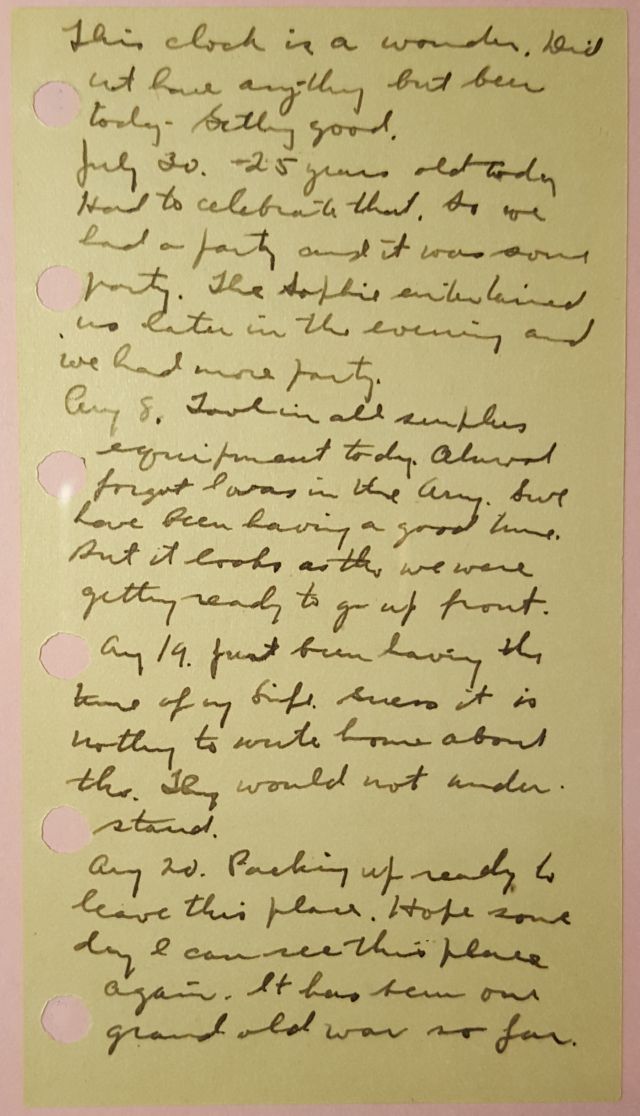 This clock is a wonder. Did
not have anything but beer
today - Getting good.
July 30. - 25 years old today
Had to celebrate that. So we
had a party and it was some
party. The Sophie entertained
us later in the evening and
we had more party.
Aug 8. in all surplus
equipment today. Almost
forgot I was in the Army.
have been having a good time.
But it looks as tho we were
getting ready to go up front.
Aug 19. Just been having the
time of my life. Guess it is
nothing to write home about
tho. They would not under-
stand.
Aug 20. Packing up ready to
leave this place. Hope some
day I can see this place
again. It has been one
grand old war so far.